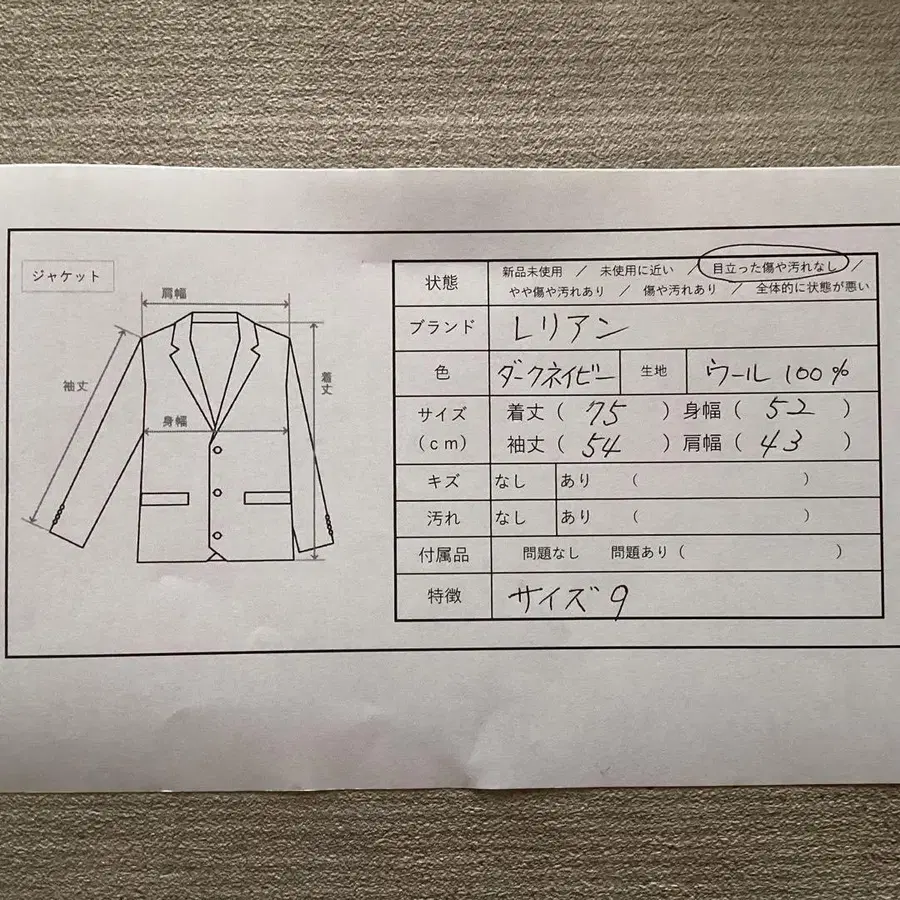 ジャケット
肩幅
袖丈
着丈
身幅
状態 新品未使用 / 未使用に近い / 目立った傷や汚れなし /
やや傷や汚れあり / 傷や汚れあり / 全体的に状態が悪い
ブランド レリアン
色 ダークネイビー 生地 ウール 100%
サイズ 着丈( 75 )身幅( 52 )
(cm) 袖丈( 54 )肩幅( 43 )
キズ なし あり ( )
汚れ なし あり ( )
付属品 問題なし 問題あり( )
特徴 サイズ9